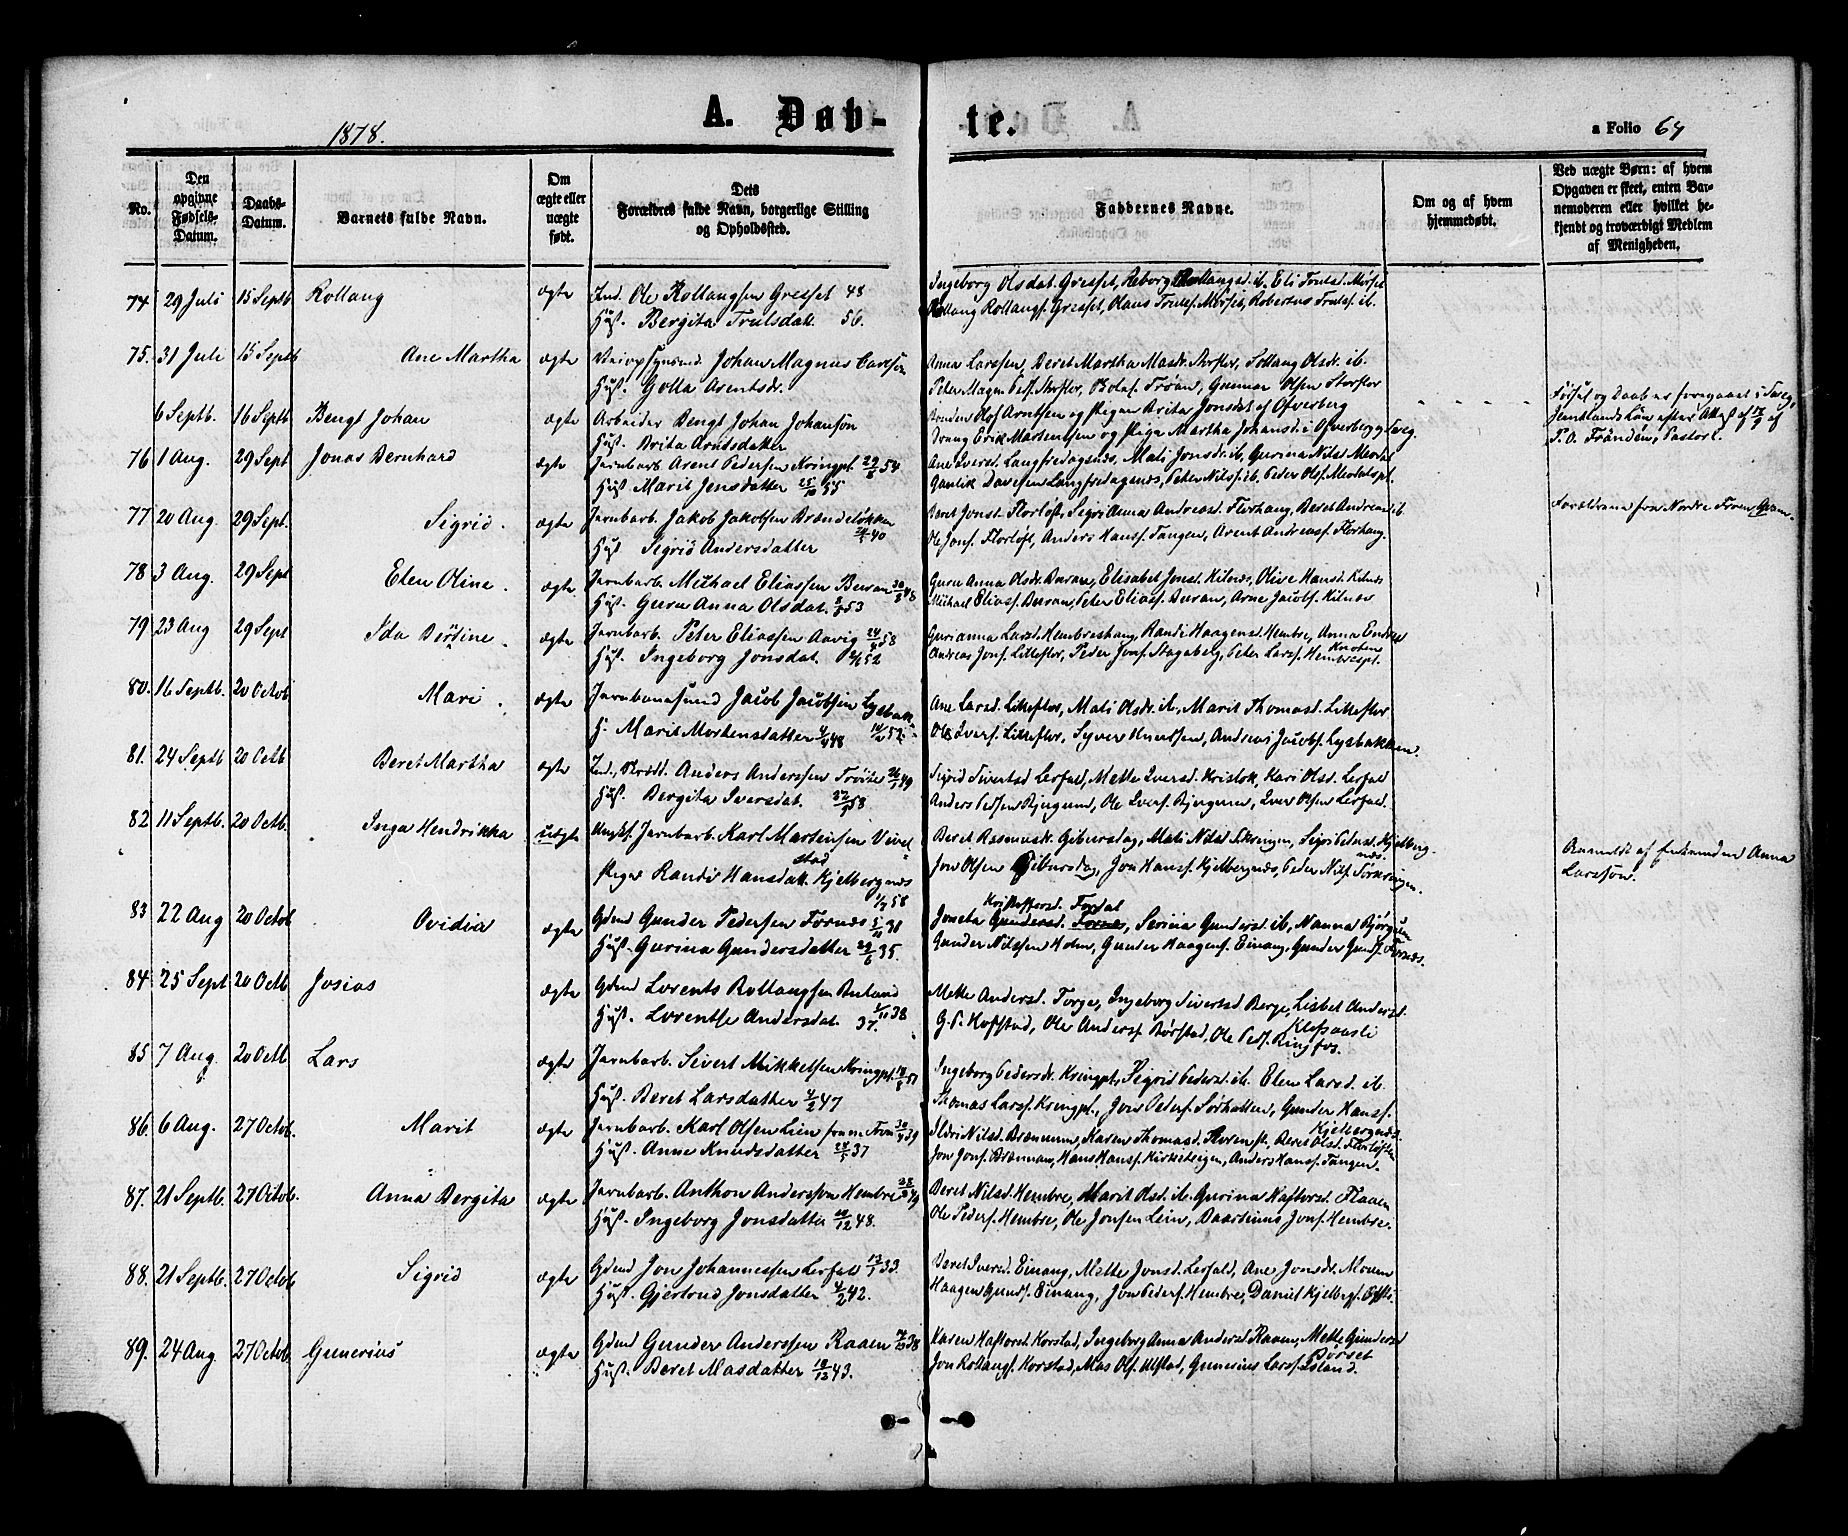 1878.
A. Døb-
te.
a Folio 64
No.
Den opgivne Fødsels-Datum.
Daabs-Datum.
Barnets fulde Navn.
Om ægte eller uægte født.
Dets Forældres fulde Navn, borgerlige Stilling og Opholdssted.
Faddernes Navne.
Om og af hvem hjemmedøbt.
Ved uægte Børn: af hvem Opgaven er skeet, enten Barnemoderen eller hvilket bekjendt og troværdigt Medlem af Menigheden.
74 29 Juli 15 Septb Rollaug ægte Ind. Ole Rollaugsen Gresset 48
Hust. Bergita Trulsdatt. 56.
Ingeborg Olsdat. Gresset, Reborg Rollaugsd. ib. Eli Trulsd. Morset
Rollaug Rollaugs. Gresset, Olaus Trulss. Morset, Robertus Trulss. ib.
75. 31 Juli 15 Septb Ane Martha ægte Johan Magnus Carlson
Hust. Golla Arentsdr.
Anna Larssen, Beret Martha Masdr. Storflor, Sollaug Olsdr. ib.
Gunnar Olsen Storflor
6 Septb. 16 Septb. Bengt Johan ægte Arbeider Bengt Johan Johanson
Hust. Brita Arntsdatter
Bonden Olof Arntsen og Pigen Brita Jonsdat af Ofverberg
Dreng Erik Martensen og Pige Martha Johansd. i Ofverberg, Sveg.
Fødsel og Daab er foregaaet i Sveg,
Jemtlands Län, efter Attest af 17/9 af
P. O. Frändén, Pastor.
76 1 Aug. 29 Sept Jonas Bernhard ægte Jernbarb. Arent Pedersen Kringpl. 29/6 54
Hust Marit Jensdatter 25/10 55
Ane Iversd. Langfredagsnæs, Mali Jonsdr. ib, Gurina Nilsd Moslet
Langfredagsnæs, Peter Nilss. ib. Peder Olss.
77 20 Aug 29 Sept. Sigrid. ægte Jernbarb. Jakob Jakobsen Brændeløkken
Hust Sigrid Andersdatter
Beret Jonsd. Florløft, Anna Andreasd. Florhaug, Beret Andreasd ib
Ole Jonss. Florløft, Anders Hanss. Tangen, Arent Andreass. Florhaug.
Forældrene fra Nordre Fron, Qvam.
78 3 Aug. 29 Sept Elen Oline. ægte Jernbarb. Mikael Eliassen Buran 30/5 48
Hust. Guru Anna Olsdat. 53
Guru Anna Olsdr. Buran, Elisabet Jonsd. Kilnæs, Olive Hansd. Kilnæs
Mikael Eliass. Buran, Peter Eliass. Buran, Arne Jacobs. Kilnæs
79 23 Aug 29 Sept Ida Bersine. ægte Jernbarb. Peter Eliassen Aavig 24/4 58
Hust. Ingeborg Jonsdat. 52
Gurianna Larsd. Hembrehaug, Randi Haagensd. Hembre, Anna Endresd
Andreas Jonss. Litleflor, Peder Jonss. Stagaberg, Peter Larss. Hembrespl.
80. 16 Septb. 20 Octob Mari. ægte Jernbanesmed Jacob Jacobsen Lysbak
H. Marit Mortensdatter 4/4 48 52.
Ane Larsd. Litleflor, Mali Olsdr. ib, Marit Thomasd. Litleflor
Ole Iverss. Litleflor, Syver Knudsen, Andreas Jacobs. Lysbakken.
81. 24 Septb 20 Octb Beret Martha ægte Ind., Skrædd. Anders Anderssen 49
Hust. Bergita Iversdat. 53.
Sigrid Sivertsd Lerfald, Mette Iversd. Kristok, Kari Olsd. Lerfald
Anders Peds. Bjergum, Ole Iverss. Bjergum, Iver Olsen Lerfald.
82 11 Septb. 20 Octb. Inga Hendrikka uægte Ungk. Jernbarb. Karl Martensen Vinel-
stad
Pige Randi Hansdatt. Kjelbergnæs 58
Beret Rasmusd. Gibursdag, Mali Nilsd. Skringen, Sigri Pedersd. Kjelberg-
næs.
Jon Olsen Gibursdag, Jon Hanss. Kjelbergnæs, Peder Nilss.
Anmeldt af Anna
Larsson.
83 22 Aug 20 Octob Ovidia ægte Gdmd Gunder Pedersen Fornæs 5/11 31
Hust. Gurina Gundersdatter 29/6 35.
Kristoffersd. Fordal
Joneta Gundersd. Fornæs, Serina Gundersd ib, Nanna Bjørgum
Gunder Nilssen Holm, Gunder Haagens. Einang, Gunder Gunds. Fornæs.
84. 25 Sept 20 Octb Josias ægte Gdmd Lorents Rollaugsen Buland 38
Hust. Lorentse Andersdat. 37.
Mette Andersd. Forge, Ingeborg Sivertsd Berge, Lisbet Andersd.
Klefsaasli
G. P. Hofstad, Ole Anders. Børstad, Ole Peds. Ringfos.
85 7 Aug. 20 Octb Lars ægte Jernbarb. Sivert Mikkelsen Kringpl. 51
Hust. Beret Larsdatter 4/2 47
Ingeborg Pedersdr. Kringpl., Sigrid Pedersd. ib. Elen Larsd. ib.
Thomas Larss. Kringpl., Jon Peders. Sørhatten, Gunder Hanss.
Kjelbergnæs.
86. 6 Aug. 27 Octob. Marit ægte Jernbarb. Karl Olsen Lien fra 39
Hust. Anne Knudsdatter 37
Ildri Nilsd. Brænnum, Karen Thomasd. Beret Olsd. Florløften
Jon Jonss. Brænnum, Hans Hanss. Kirketeigen, Anders Hanss. Tangen.
87. 21 Septb. 27 Octob. Anna Bergita ægte Jernbarb. Anthon Anderssen Hembre 49
Hust. Ingeborg Jonsdatter 10/12 48.
Beret Nilsd. Hembre, Marit Olsd. ib. Gurina Haftorsd. Flaaen
Ole Peders. Hembre, Ole Jonsen Lein, Baartinus Jonss. Hembre.
88. 21 Septb. 27 Octob Sigrid ægte Gdmd Jon Johannessen Lerfald 13/1 33
Hust. Gjertrud Jonsdatter 4/2 42.
Beret Iversd. Einang, Mette Jonsd. Lerfald, Ane Jonsdr. Moum
Haagen Gunds. Einang, Jon Peders. Hembre, Daniel Kjelbergs.
89. 24 Aug 27 Octob Gunerius ægte Gdmd Gunder Anderssen Raaen 38
Hust. Beret Masdatter 10/12 43.
Karen Haftorsd. Korstad, Ingeborg Anna Andersd Raaen, Mette Gundersd
Børset
Jon Rollaugs. Korstad, Mas Ols. Ulstad, Gunerius Larss. Island.